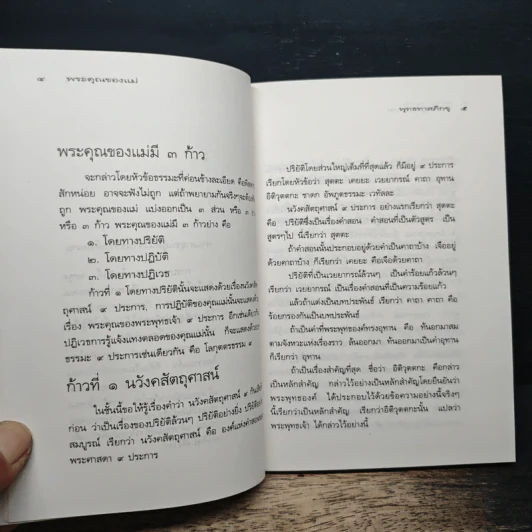 ๔ พระคุณของแม่
พระคุณของแม่มี ๓ ก้าว
จะกล่าวโดยหัวข้อธรรมะที่ค่อนข้างละเอียด
สักหน่อย อาจจะฟังไม่ถูก แต่ถ้าพยายามกันจริงๆจะต้อง
ถูก พระคุณของแม่ แบ่งออกเป็น ๓ ส่วน หรือ ๓
หรือ ๓ ก้าว พระคุณของแม่ ๓ ก้าวอย่าง คือ
๑. โดยทางปริยัติ
๒. โดยทางปฏิบัติ
๓. โดยทางปฏิเวธ
ก้าวที่ ๑ โดยทางปริยัตินั้นจะแสดงด้วยเรื่องนวังคสั
ตถุศาสน์ ๙ ประการ, การปฏิบัติของคุณแม่นั้นจะแสดง
เรื่อง พระคุณของพระพุทธเจ้า ๙ ประการ อีกเช่นเดียว
ปฏิเวธการรู้แจ้งแทงตลอดของคุณแม่นั้น ก็จะแสดงด้วย
ธรรมะ ๙ ประการเช่นเดียวกัน คือ โลกุตตรธรรม ๙
ก้าวที่ ๑ นวังคสัตถุศาสน์
ในชั้นนี้ขอให้รู้เรื่องคำว่า นวังคสัตถุศาสน์ ๙ กันเสีย
ก่อน ว่าเป็นเรื่องของปริยัติล้วนๆ ปริยัติอย่างยิ่ง ปริยัติ
สมบูรณ์ เรียกว่า นวังคสัตถุศาสน์ คือ องค์แห่งคำสอน
พระศาสดา ๙ ประการ
พุทธทาสภิกขุ ๕
ปริยัติโดยส่วนใหญ่เต็มที่ที่สุดแล้ว ก็มีอยู่ ๙ ประการ
เรียกโดยหัวข้อว่า สุตตะ เคยยะ เวยยากรณ์ คาถา อุทาน
อิติวุตตกะ ชาดก อัพภูตธรรม เวทัลละ
นวังคสัตถุศาสน์ ๙ ประการ อย่างแรกเรียกว่า สุตตะ
คือ ปริยัติซึ่งเป็นเรื่องคำสอน คำสอนที่เป็นตัวสูตร เป็น
สูตรๆไป นี้เรียกว่า สุตตะ
ถ้าคำสอนนั้นประกอบอยู่ด้วยคำเป็นคาถาบ้าง เจืออยู่
ด้วยคาถาบ้าง ก็เรียกว่า เคยยะ คือเจือด้วยคาถา
ปริยัติที่เป็นเวยยากรณ์ล้วนๆ เป็นคำร้อยแก้วล้วนๆ
เรียกว่า เวยยากรณ์ เป็นคำสอนที่เป็นความร้อยแก้ว
แล้วถ้าแต่งเป็นบทประพันธ์ เรียกว่า คาถา คาถา คือ
ร้อยกรองกันเป็นบทประพันธ์
ถ้าเป็นคำที่พระพุทธองค์ทรงอุทาน คือ ทันออกมาสม
ตามจังหวะแห่งเรื่องราว ล้นออกมา ทันออกมาเป็นคำอุทาน
ก็เรียกว่า อุทาน
ถ้าเป็นเรื่องสำคัญที่สุด ชื่อว่า อิติวุตตกะ คือกล่าว
เป็นหลักสำคัญ กล่าวไว้อย่างเป็นหลักสำคัญโดยยืนยันว่า
พระพุทธองค์ ได้ประกอบไว้ด้วยข้อความอย่างนี้จริงๆ
นี้เรียกว่าเป็นหลักสำคัญ เรียกว่าอิติวุตตกะนั้น แปลว่า
พระพุทธเจ้า ได้กล่าวไว้อย่างนี้